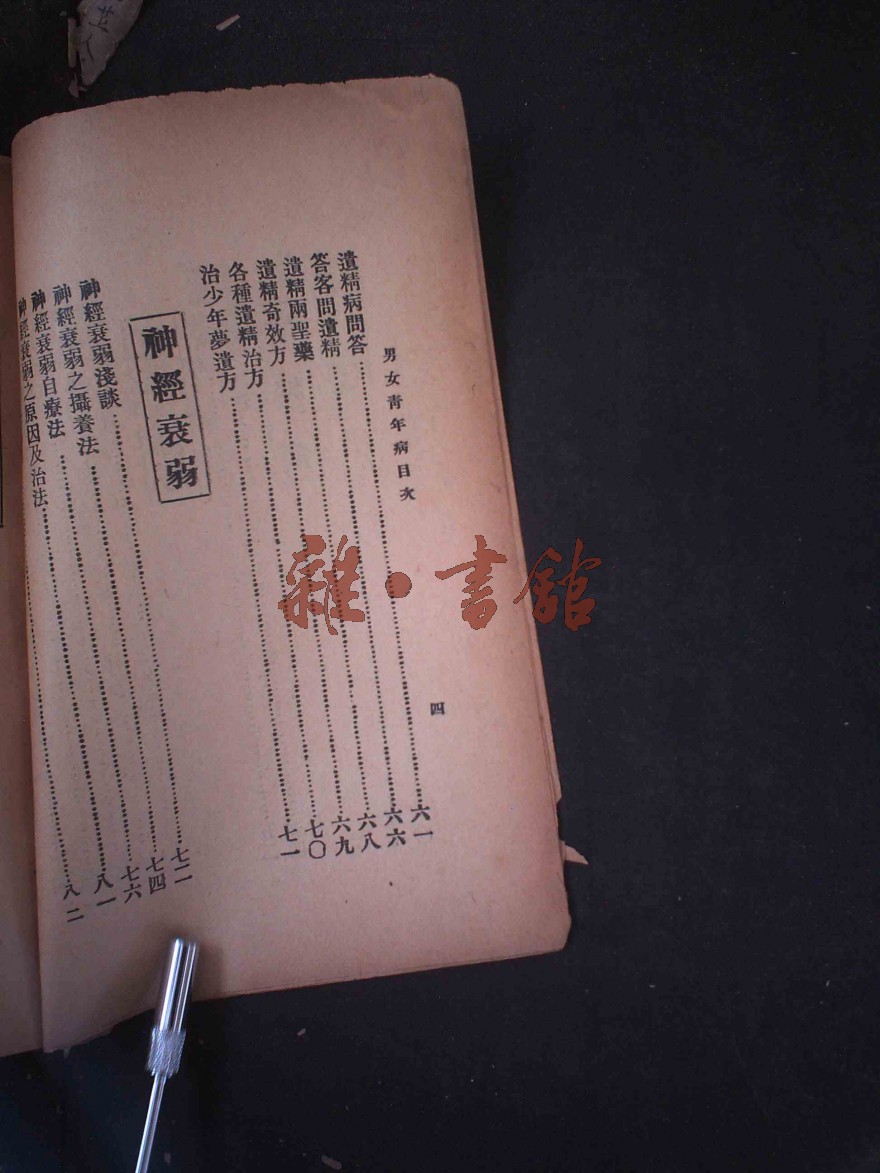 男女青年病目次 四
遺精病問答……六一
答客問遺精……六六
遺精兩聖藥……六八
遺精奇效方……六九
各種遺精治方……七〇
治少年夢遺方……七一
神經衰弱
神經衰弱淺談……七二
神經衰弱之攝養法……七四
神經衰弱自療法……七六
神經衰弱之原因及治法……八一
八二
雜·書館